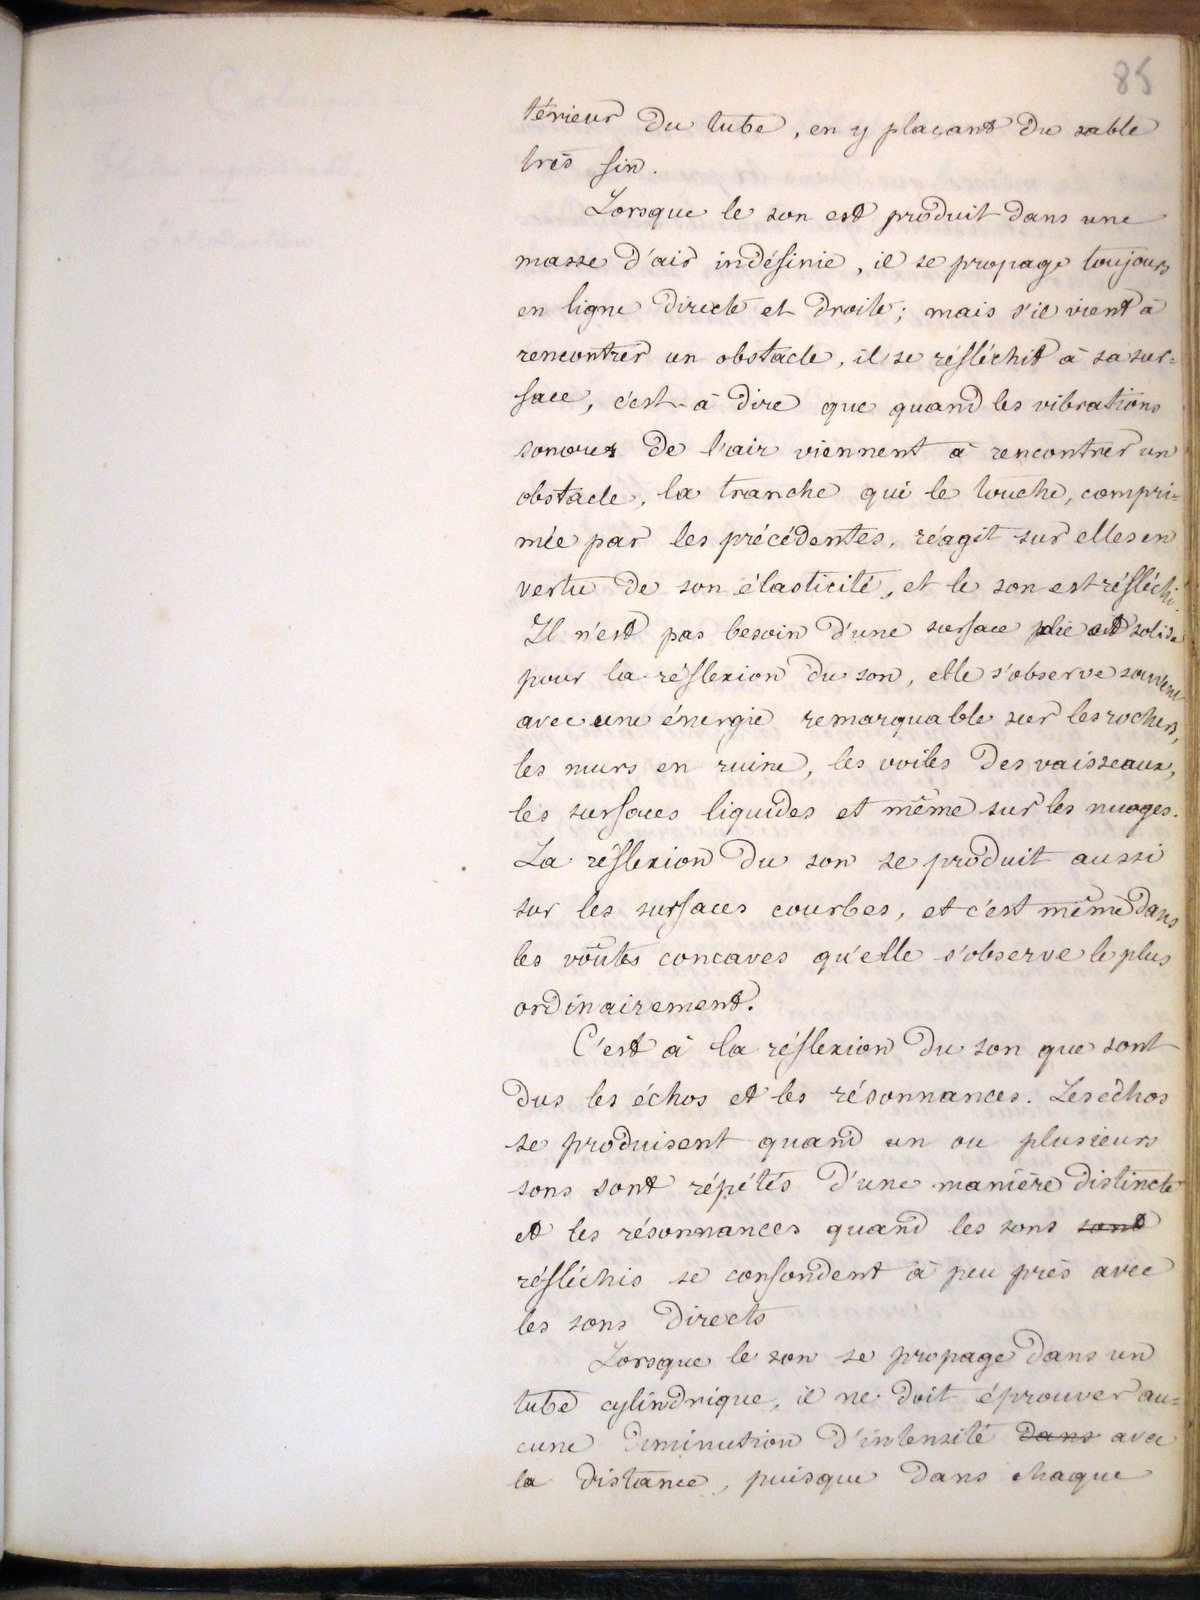 85
térieur du tube, en y plaçant du sable
très fin.
Lorsque le son est produit dans une
masse d'air indéfinie, il se propage toujours
en ligne directe et droite; mais s'il vient à
rencontrer un obstacle, il se réfléchit à sa sur=
face, c'est-à dire que quand les vibrations
sonores de l'air viennent à rencontrer un
obstacle, la tranche qui le touche, compri=
mée par les précédentes, réagit sur elles en
vertu de son élasticité, et le son est réfléchi.
Il n'est pas besoin d'une surface plie et solide
pour la réflexion du son, elle s'observe souvent
avec une énergie remarquable sur les rochers,
les murs en ruine, les voiles des vaisseaux,
les surfaces liquides et même sur les nuages.
La réflexion du son se produit aussi
sur les surfaces courbes, et c'est même dans
les voûtes concaves qu'elle s'observe le plus
ordinairement.
C'est à la réflexion du son que sont
dus les échos et les résonnances. Les echos
se produisent quand un ou plusieurs
sons sont répétés d'une manière distincte
et les résonnances quand les sons sont
réfléchis se confondent à peu près avec
les sons directs
Lorsque le son se propage dans un
tube cylindrique, il ne doit éprouver au=
cune diminution d'intensité dans avec
la distance, puisque dans chaque